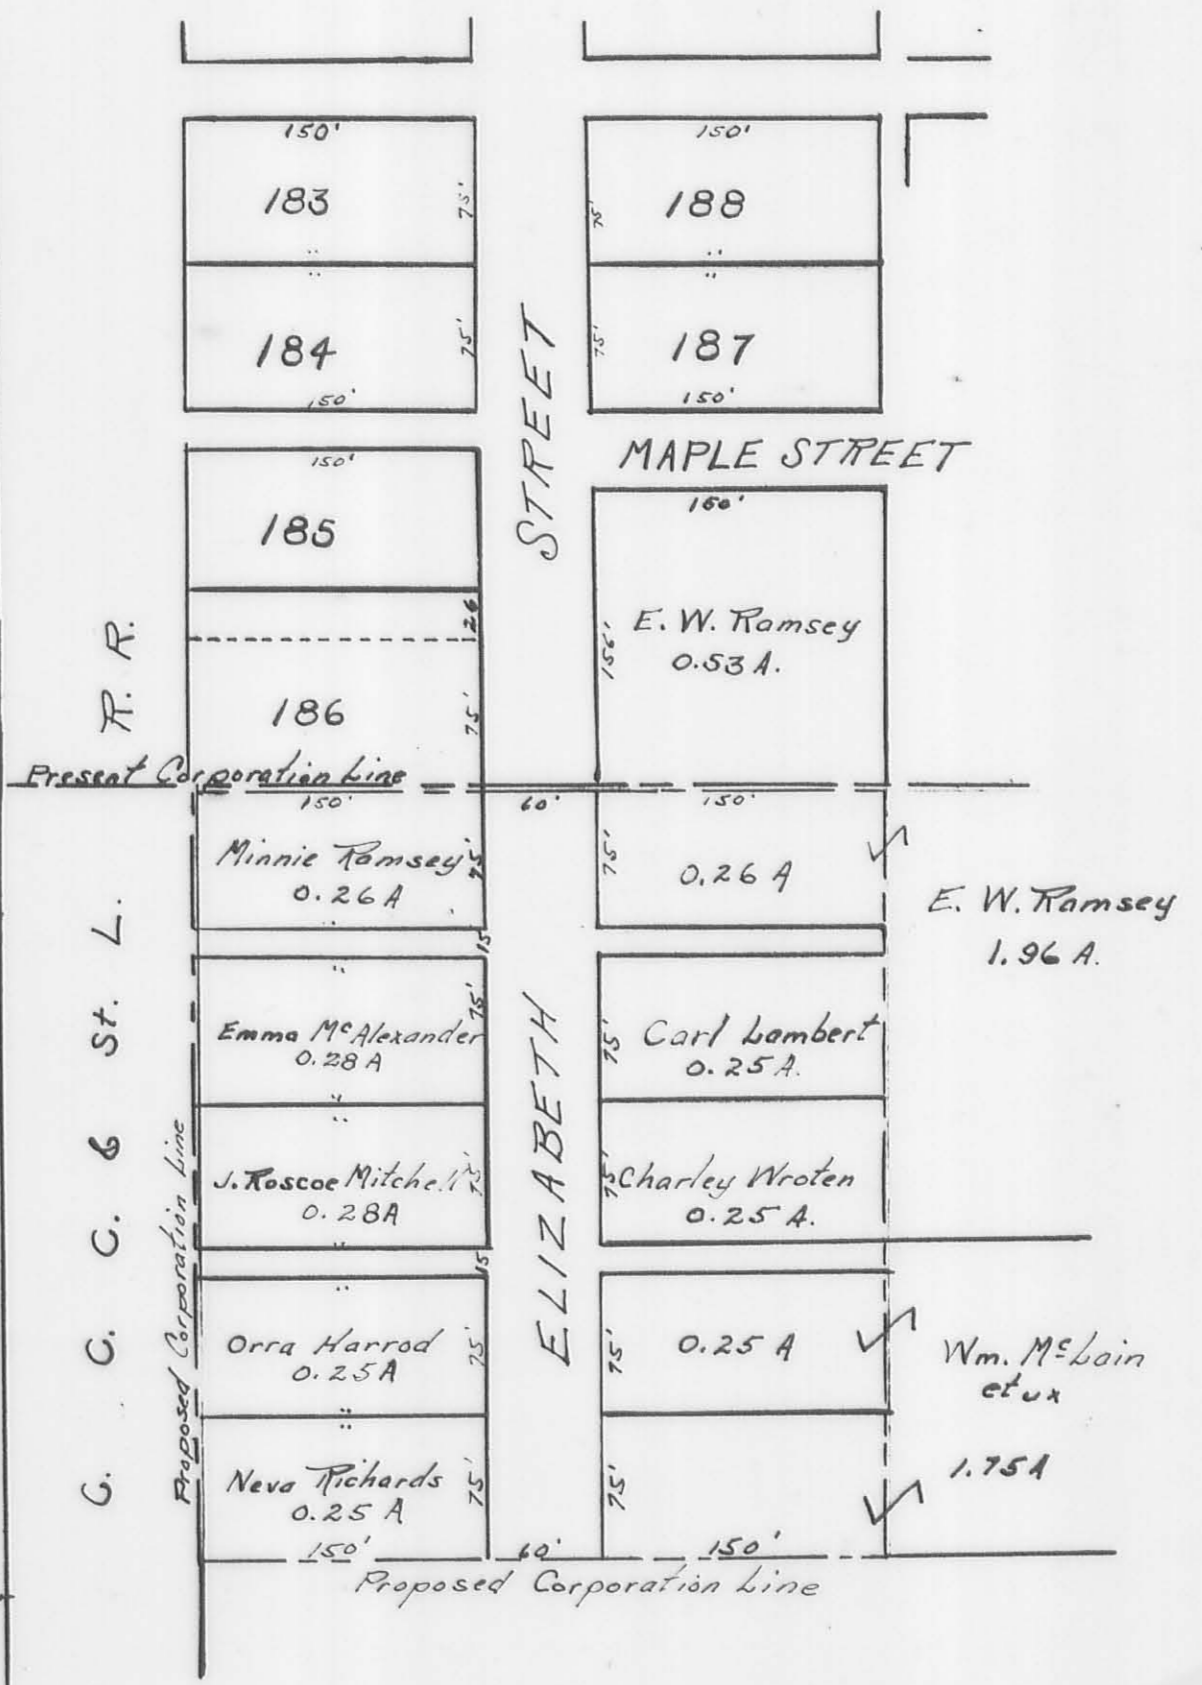 150'
183
75'
150'
188
75'
184
75'
150'
187
75'
150'
STREET
MAPLE STREET
150'
185
26
186
75'
150'
E. W. Ramsey
0.53 A.
156'
R. R.
Present Corporation Line
150'
60'
150'
Minnie Ramsey
0.26 A
75'
75'
0.26 A
E. W. Ramsey
1.96 A.
15
Emma McAlexander
0.28 A
75'
75'
Carl Lambert
0.25 A.
J. Roscoe Mitchell
0.28A
75'
75'
Charley Wroten
0.25 A.
15
ELIZABETH
C. C. C. & St. L.
Proposed Corporation Line
Orra Harrod
0.25A
75'
75'
0.25 A
Wm. McLain
et ux
1.75A
Neva Richards
0.25 A
75'
75'
150'
60'
150'
Proposed Corporation Line